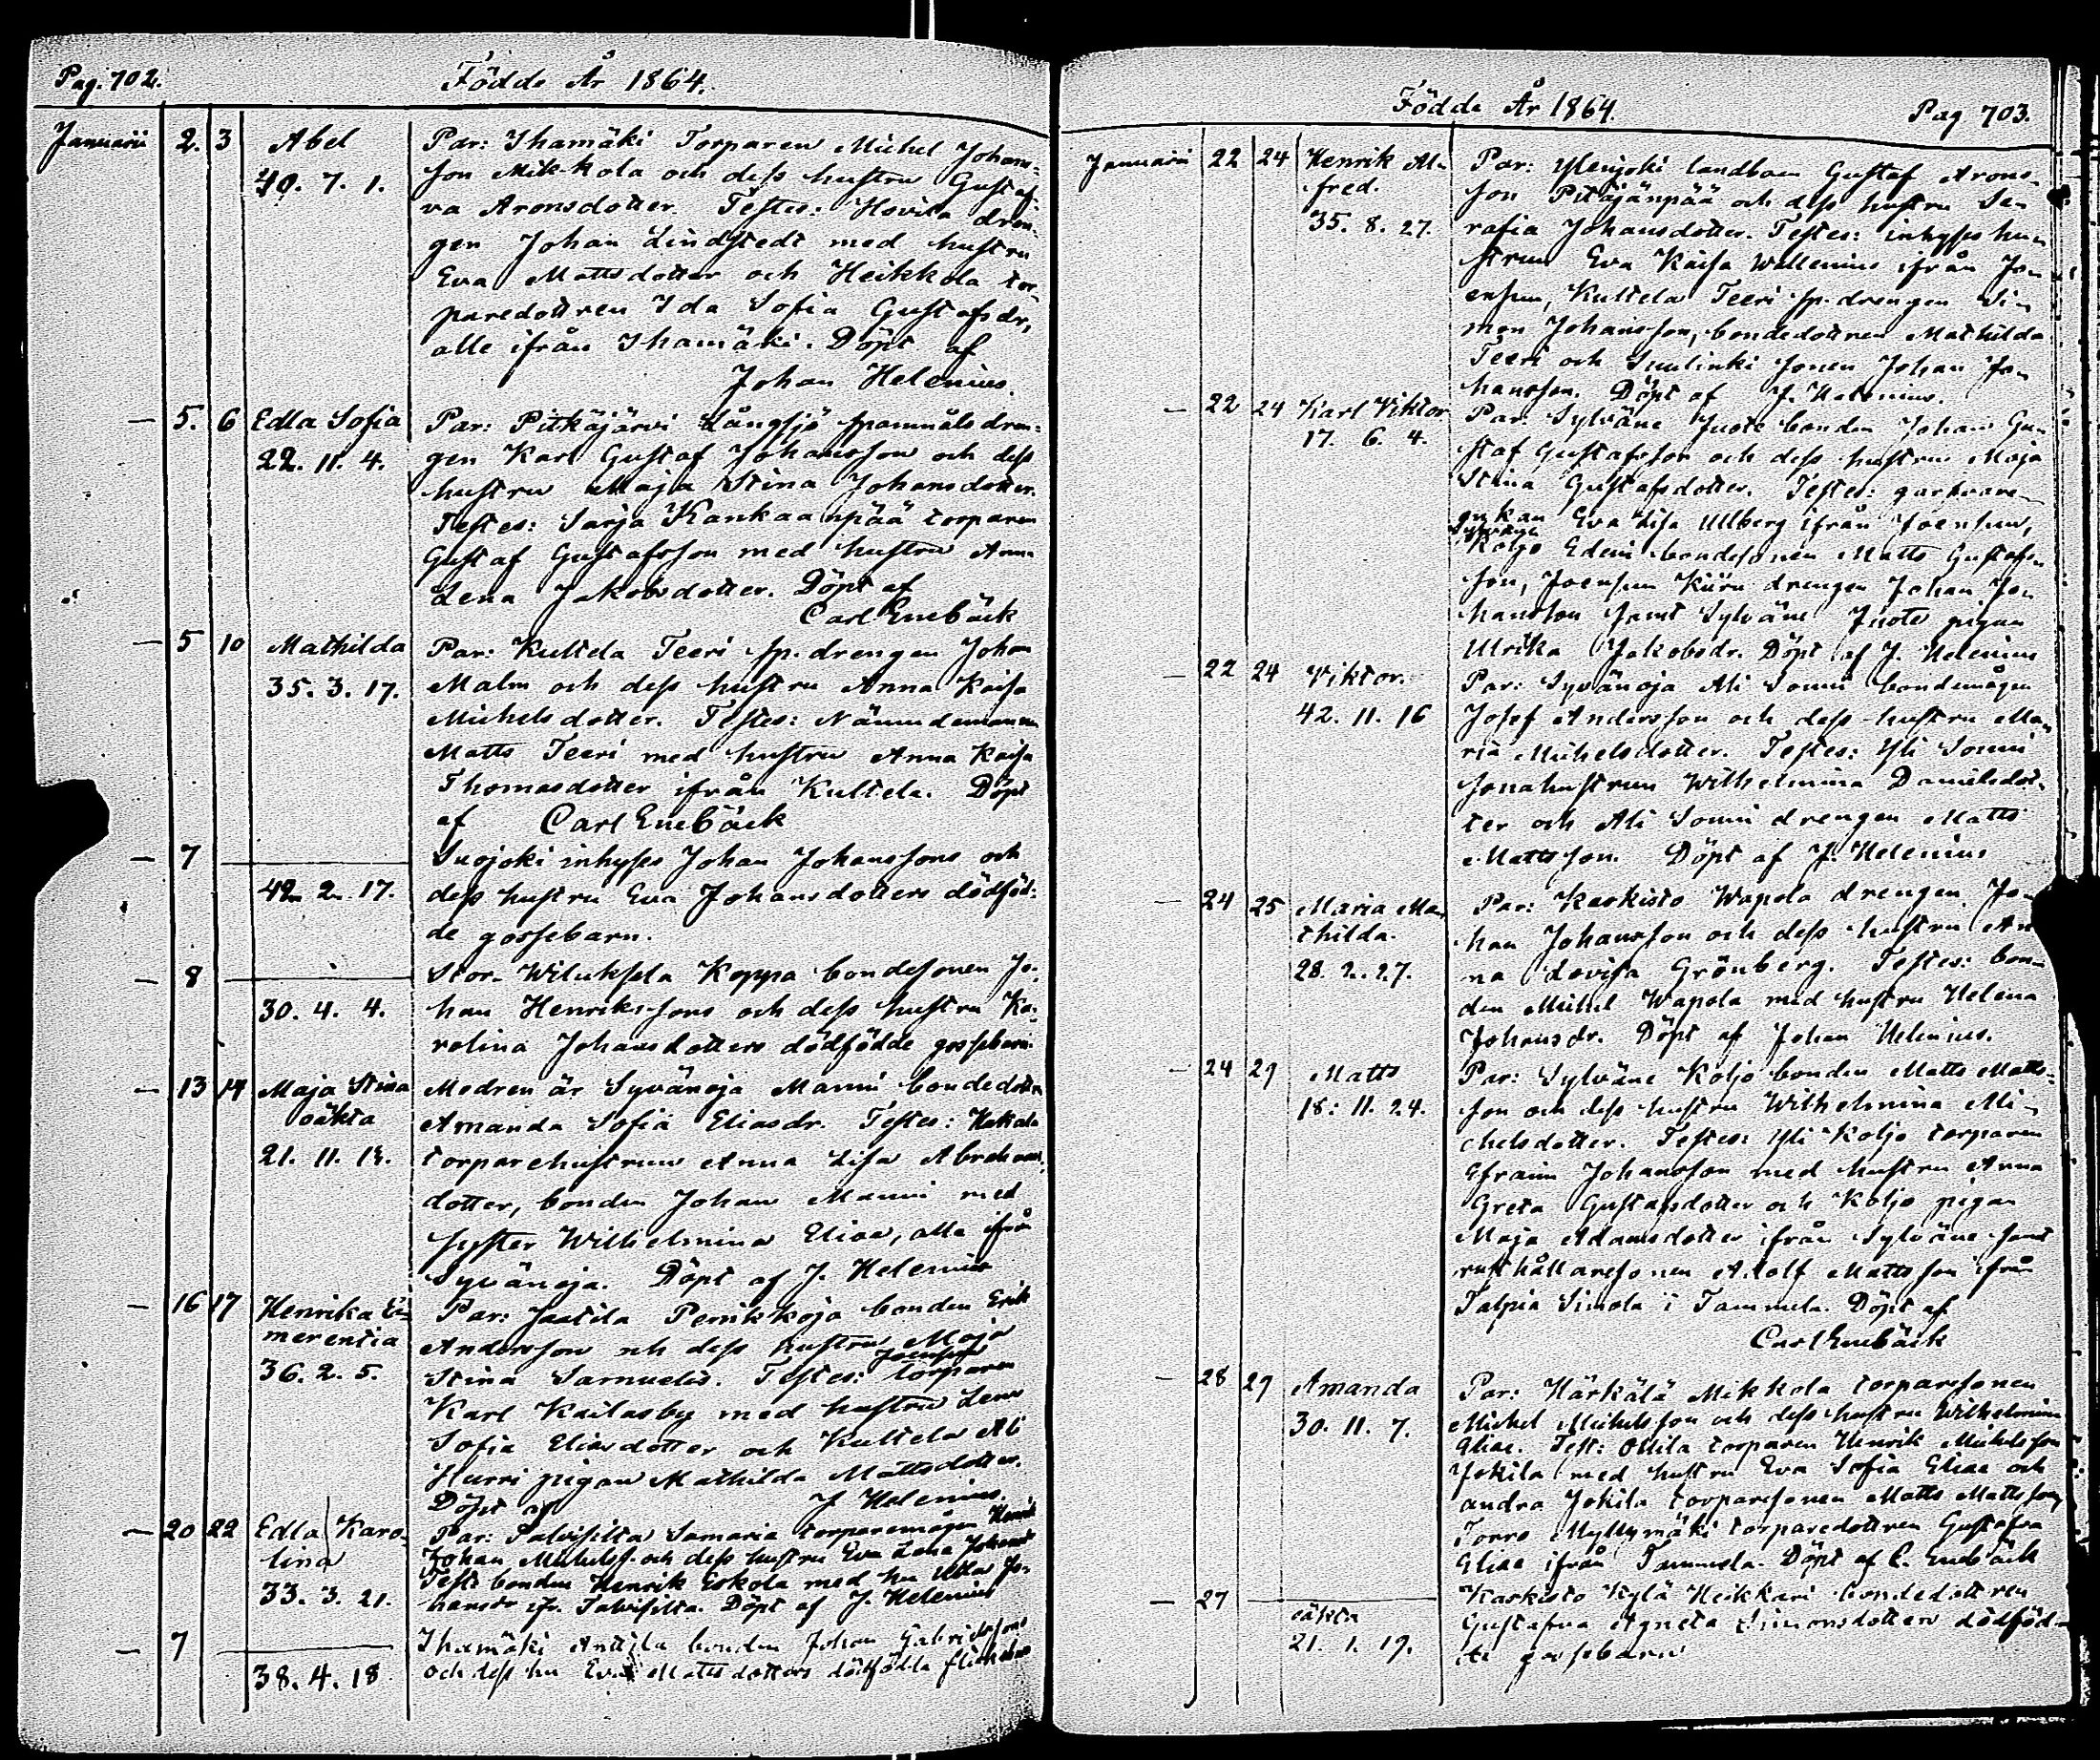 Pag. 702.
Födde År 1864.
Januarii 2. 3 Abel
40. 7. 1.
Par: Ihamäki Torparen Michel Johans-
son Mikkola och dess hustru Gustaf-
va Aronsdotter. Testes: Hovila dren-
gen Johan Lindstedt med hustru
Eva Mattsdotter och Heikkola tor-
paredottren Ida Sofia Gustafsdr,
alle ifrån Ihamäki. Döpt af
Johan Helenius.
— 5. 6 Edla Sofia
22. 11. 4.
Par: Pitkäjärvi Långsjö spannmåls dren-
gen Karl Gustaf Johansson och dess
hustru Maja Stina Johansdotter.
Testes: Sarja Kankaanpää torparen
Gustaf Gustafsson med hustru Anna
Lena Jakobsdotter. Döpt af
Carl Enebäck
— 5 10 Mathilda
35. 3. 17.
Par: Kultela Teeri sp. drengen Johan
Malm och dess hustru Anna Kaisa
Michelsdotter. Testes: Nämndemannen
Matts Teeri med hustru Anna Kaisa
Thomasdotter ifrån Kultela. Döpt
af Carl Enebäck
— 7 —
42. 2. 17.
Suojoki inhyses Johan Johanssons och
dess hustru Eva Johansdotters dödföd-
de gossebarn.
— 8 —
30. 4. 4.
Stor-Wiluksela Koppa bondesonen Jo-
han Henrikssons och dess hustru Ka-
rolina Johansdotters dödfödde gossebarn.
— 13 14 Maja Stina
oäkta
21. 11. 18.
Modren är Syvänoja Manni bondedottren
Amanda Sofia Eliasdr. Testes: Hakala
torparehustrun Anna Lisa Abrahams-
dotter, bonden Johan Manni med
syster Wilhelmina Eliae, alla ifrån
Syvänoja. Döpt af J. Helenius
— 16 17 Henrika Ei-
merentia
36. 2. 5.
Par: Jaatila Penikkoja bonden Erik
Andersson och dess hustru Maja
Stina Samuelis. Testes: Joensuu torparen
Karl Kailasby med hustru Lena
Sofia Eliasdotter och Kultela Ali
Hurri pigan Mathilda Mattsdotter.
Döpt af J. Helenius.
— 20 22 Edla Karo-
lina
33. 3. 21.
Par: Palvisilta Samaria torparemågen Henrik
Johan Michelss. och dess hustru Eva Lena Johansd
Test: bonden Henrik Eskola med hu Ulla Jo-
hansdr ifr. Palvisilta. Döpt af J. Helenius
— 7 —
38. 4. 18
Ihamäki Anttila bonden Johan Gabrielssons
och dess hu Eva Mattsdotters dödfödda flickebarn
Födde År 1864.
Pag 703.
Januarii 22 24 Henrik Al-
fred.
35. 8. 27.
Par: Ylenjoki landbon Gustaf Arons-
son Pitäjänpää och dess hustru Se-
rafia Johansdotter. Testes: inhyses hu-
strun Eva Kaisa Wallenius ifrån Jo-
ensuu, Kultela Teeri sp. drengen Si-
mon Johansson, bondedottren Mathilda
Teeri och Suulinki sonen Johan Jo-
hansson. Döpt af J. Helenius.
— 22 24 Karl Viktor
17. 6. 4.
Par: Sylväne Juote bonden Johan Gu-
staf Gustafsson och dess hustru Maja
Stina Gustafsdotter. Testes: garfvare-
enkan Eva Lisa Ullberg ifrån Joensuu,
Sylväne
Koljo Edeni bondesonen Matts Gustafs-
son, Joensuu Kiiru drengen Johan Jo-
hansson samt Sylväne Juote pigan
Ulrika Jakobsdr. Döpt af J. Helenius
— 22 24 Viktor.
42. 11. 16
Par: Syvänoja Ali Sonni bondemågen
Josef Andersson och dess hustru Ma-
ria Michelsdotter. Testes: Yli Sonni
sonahustrun Wilhelmina Danielsdot-
ter och Ali Sonni drengen Matts
Mattsson. Döpt af J. Helenius
— 24 25 Maria Ma-
thilda.
28. 2. 27.
Par: Kaskisto Wapola drengen Jo-
han Johansson och dess hustru An-
na Lovisa Grönberg. Testes: bon-
den Michel Wapola med hustru Helena
Johansdr. Döpt af Johan Helenius.
— 24 29 Matts
18. 11. 24.
Par: Sylväne Koljo bonden Matts Matts-
son och dess hustru Wilhelmina Mi-
chelsdotter. Testes: Yli Koljo torparen
Efraim Johansson med hustru Anna
Greta Gustafsdotter och Koljo pigan
Maja Adamsdotter ifrån Sylväne samt
rusthållaresonen Adolf Mattsson ifrån
Talpia Simola i Tammela. Döpt af
Carl Enebäck
— 28 29 Amanda
30. 11. 7.
Par: Härkälä Mikkola torparesonen
Michel Michelsson och dess hustru Wilhelmina
Eliae. Test: Ollila torparen Henrik Michelsson
Jokila med hustru Eva Sofia Eliae och
andra Jokila torparesonen Matts Mattsson,
Torro Myllymäki torparedottren Gustafva
Eliae ifrån Tammela. Döpt af C. Enebäck
— 27 —
oäkta
21. 1. 19.
Kaskisto Kylä Heikkari bondedottren
Gustafva Agneta Simonsdotters dödföd-
de gossebarn